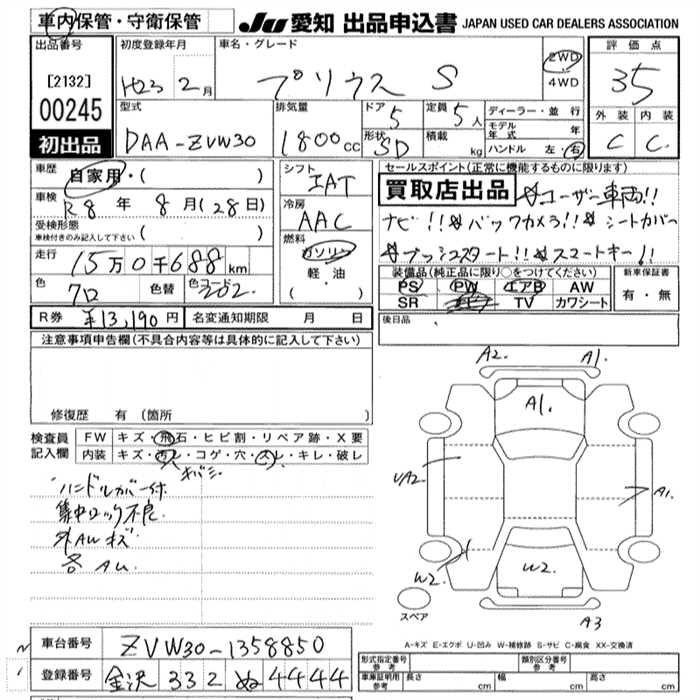 車内保管・守衛保管
JU 愛知 出品申込書 JAPAN USED CAR DEALERS ASSOCIATION
出品番号
[2132]
00245
初出品
初度登録年月
H23 2月
車名・グレード
プリウス S
2WD
4WD
評価点
3.5
外装 内装
C C
型式
DAA-ZVW30
排気量
1800cc
ドア 5
形状 5D
定員 5人
積載 kg
ディーラー・並行
モデル年式 年
ハンドル 左・右
車歴
自家用・( )
車検
R8年 8月(28日)
受検形態
車検付きのみ記入して下さい ( )
走行
15万0千688km
色 クロ 色替 カラーコード 202
シフト
IAT
冷房
AAC
燃料
ガソリン
軽・油
( ・ )
セールスポイント(正常に機能するものに限ります)
買取店出品 ☆ユーザー車両!!
ナビ!!☆バックカメラ!!☆シートカバー
☆プッシュスタート!!☆スマートキー!!
装備品(純正品に限り○をつけてください)
PS PW エアB AW
SR TV カワシート
新車保証書
有・無
R券 ¥13,190円 名変通知期限 月 日
後日品
注意事項申告欄(不具合内容等は具体的に記入して下さい)
修復歴 有(箇所
検査員記入欄
FW キズ・飛石・ヒビ割・リペア跡・X要
内装 キズ・汚れ・コゲ・穴・スレ・キレ・破レ
ハンドルカバー付
集中ロック不良
外AWキズ
各AU
A2. A1.
A1.
A1.
W2
W2.
A3
スペア
A-キズ E-エクボ U-凹み W-補修跡 S-サビ C-腐食 XX-交換済
車台番号 ZVW30-1358850
登録番号 金沢 332 ぬ 4444
形式指定番号 参考
類別区分番号 参考
車庫証明用 参考 長さ cm 幅 cm 高さ cm